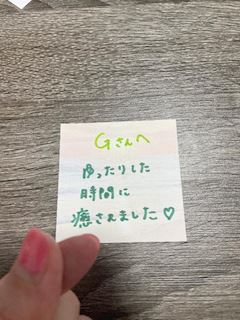 Gさんへ
ゆったりした
時間に
癒されました♡